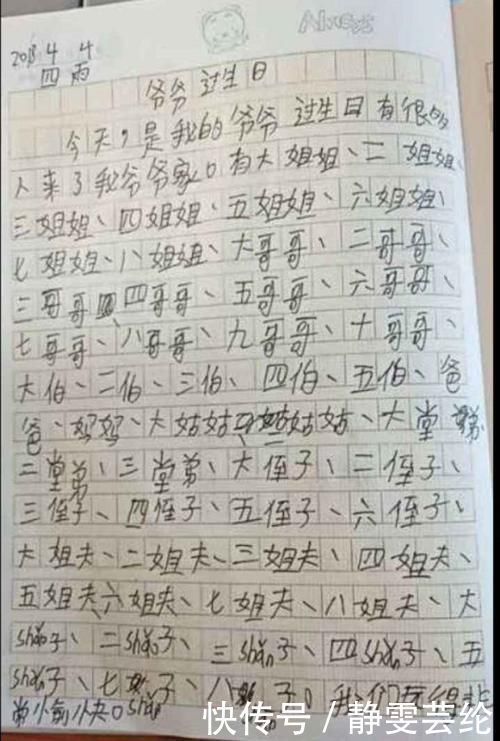 Always
2018 4 4
四 雨
爷爷过生日
今天,是我的爷爷过生日有很多
人来了我爷爷家。有大姐姐、二姐姐、
三姐姐、四姐姐、五姐姐、六姐姐、
七姐姐、八姐姐、大哥哥、二哥哥、
三哥哥、四哥哥、五哥哥、六哥哥、
七哥哥、八哥哥、九哥哥、十哥哥、
大伯、二伯、三伯、四伯、五伯、爸
爸、妈妈、大姑姑、二姑姑、大堂弟
二堂弟、三堂弟、大侄子、二侄子、
三侄子、四侄子、五侄子、六侄子、
大姐夫、二姐夫、三姐夫、四姐夫、
五姐夫、六姐夫、七姐夫、八姐夫、大
shěn子、二shěn子、三shěn子、四shěn子、五
shěn子、七子、八子。我们
快传号/静雯芸纶